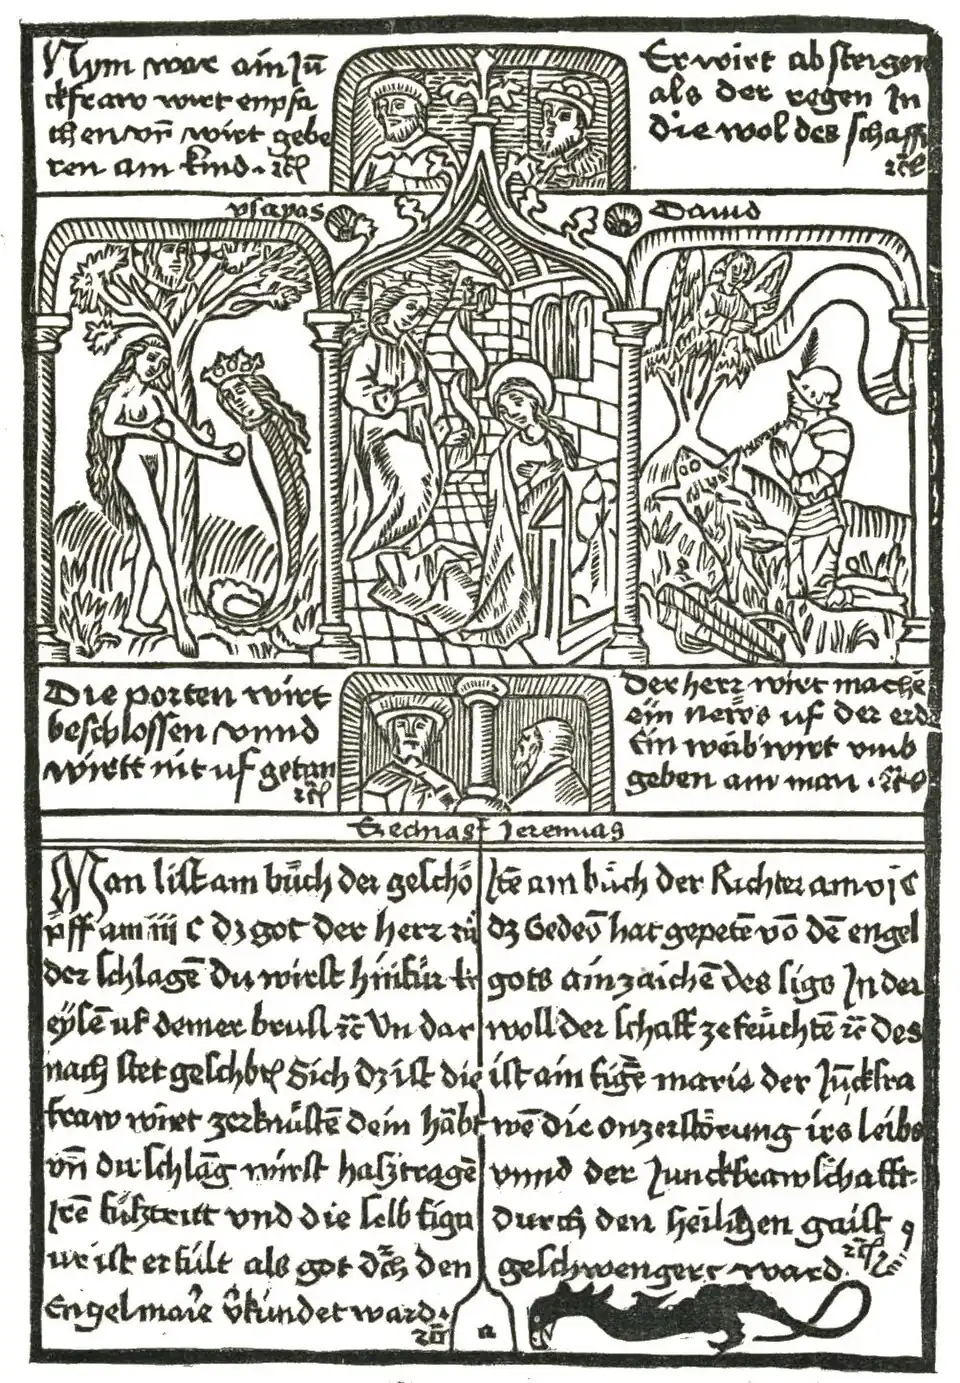 Nym war ain Jū
ckfraw wirt enpfa
chen vn̄ wirt gebe
ren ain kind · ꝛc̄
Er wirt ab steigen
als der regen In
die wol des schaff
ꝛc̄
ysayas
Dauid
Die porten wirt
beschlossen vnnd
wirtt nit uf getan
ꝛc̄
Der herr wirt machē
ein news uf der erd
Ein weib wirt vmb
geben ain man · ꝛc̄
Jeremias
Man list am bůch der geschö
pff am iii c dz got der herr zů
der schlagē Du wirst hinfür
uf deiner brust ꝛc̄ Vn dar
nach stet Sich dz ist die
fraw wirt zerknüstē dein häbt
vn̄ du schlāg wirst tragē
Irē fůsztritt vnd die selb figu
ur ist erfült als got den
Engel marie v̄kündet ward ·
ꝛc̄
Itē am bůch der Richter am vi c
dz Gedeō hat gepetē vō dē engel
gots ain zaichē des sigs In der
woll der schaff ze feüchtē ꝛc̄ des
ist ain figē marie der Jūckfra
wē die onzerstörung irs leibs
vnnd der Junckfrawschafft
durch den heiligen gaist
geschwengert ward ꝛc̄
a